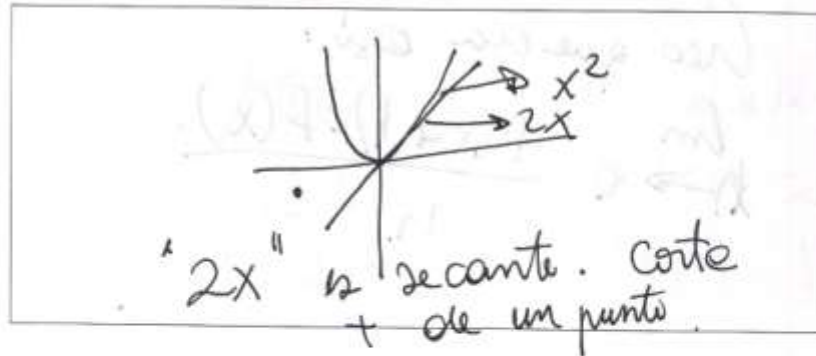 x²
2x
"2x" es secante. corte
+ de un punto.